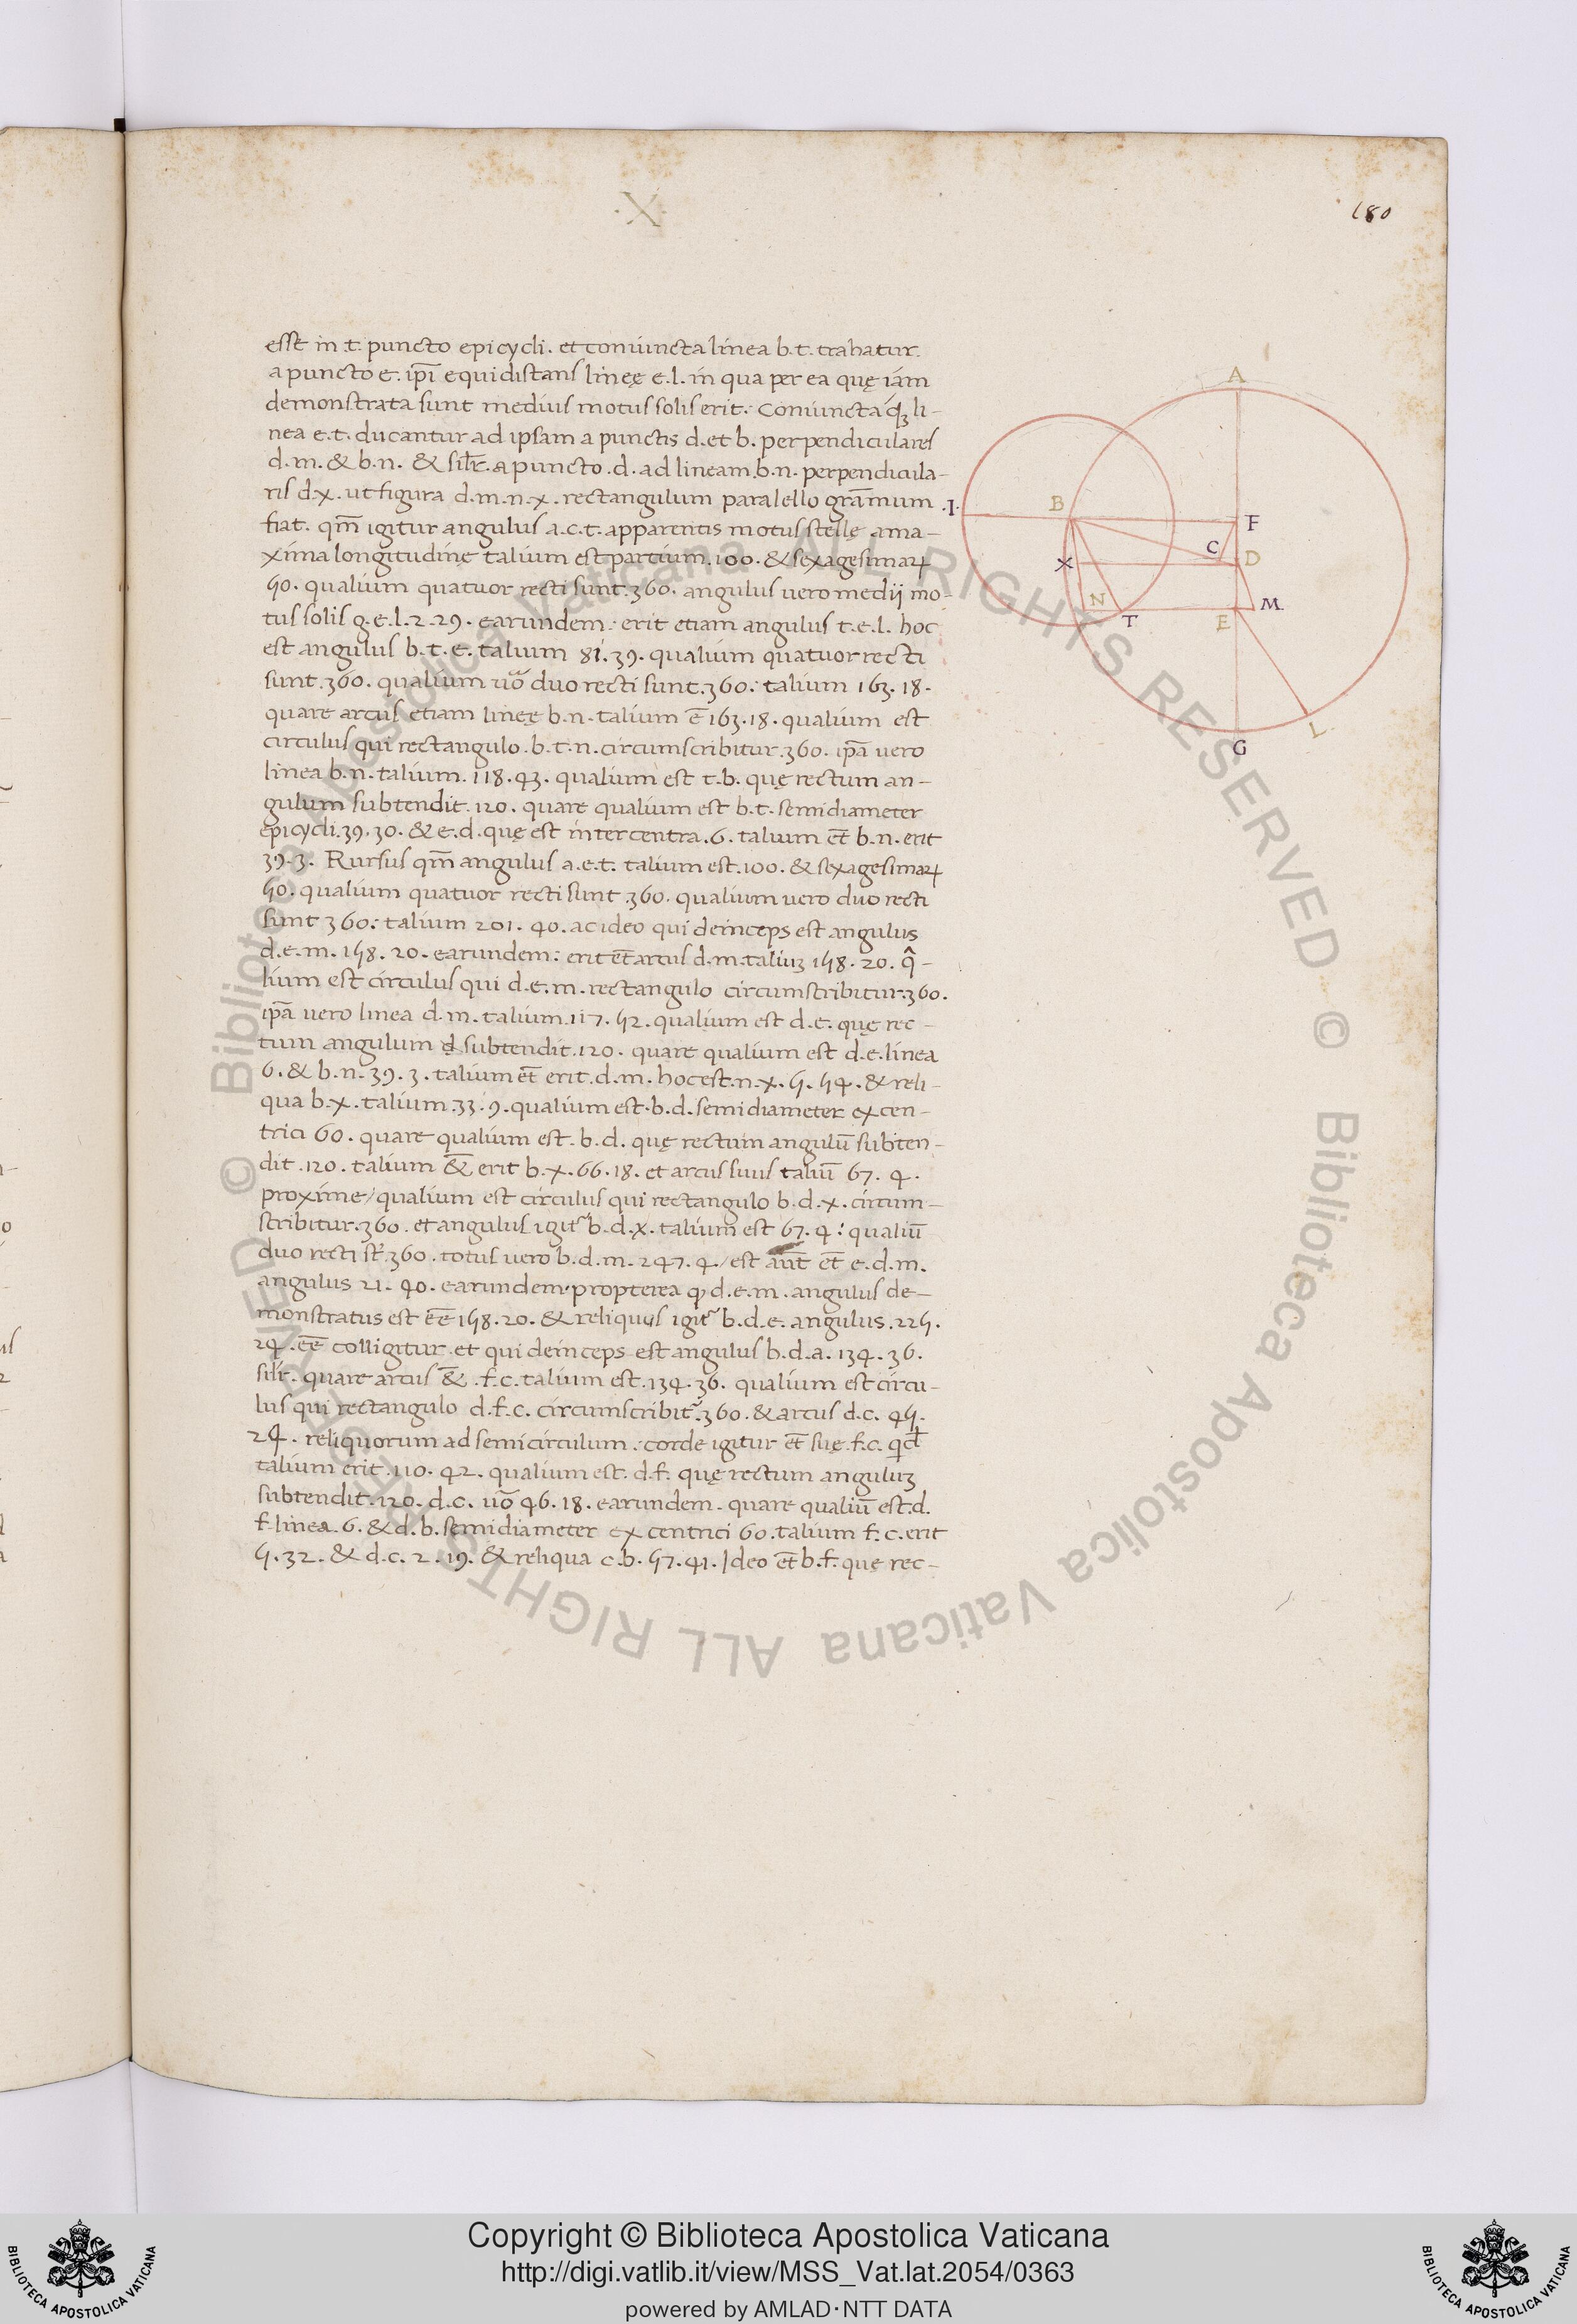 ·X·
180
esse in .t. puncto epicycli. et coniuncta linea b.t. trahatur
a puncto e. ip̄i equidistans lineę e.l. in qua per ea quę iam
demonstrata sunt medius motus solis erit. Coniunctaqꝫ li-
nea e.t. ducantur ad ipsam a punctis d. et b. perpendiculares
d.m. & b.n. & sil̄r. a puncto .d. ad lineam .b.n. perpendicula-
ris d.x. ut figura d.m.n.x. rectangulum paralello grām̄um
fiat. qm̄ igitur angulus a.c.t. apparentis motus stellę a ma-
xima longitudinę talium est partium .100. & sexagesimaꝝ
50. qualium quatuor recti sunt .360. angulus vero medij mo-
tus solis g.e.l. 2. 29. earundem: erit etiam angulus t.e.l. hoc
est angulus b.t.e. talium 81. 39. qualium quatuor recti
sunt .360. qualium uō duo recti sunt .360: talium 163. 18.
quare arcus etiam lineę b.n. talium ē 163. 18. qualium est
circulus qui rectangulo .b.t.n. circumscribitur .360. ip̄a vero
linea b.n. talium. 118. 43. qualium est t.b. quę rectum an-
gulum subtendit .120. quare qualium est b.t. semidiameter
epicycli .39. 30. & e.d. quę est inter centra .6. talium et̄ b.n. erit
39. 3. Rursus qm̄ angulus a.e.t. talium est .100. & sexagesimaꝝ
50. qualium quatuor recti sunt .360. qualium vero duo recti
sunt 360: talium 201. 40. ac ideo qui deinceps est angulus
d.e.m. 158. 20. earundem: erit et̄ arcus d.m. taliuꝫ 158. 20. q̄-
lium est circulus qui d.e.m. rectangulo circumscribitur .360.
ip̄a vero linea d.m. talium .117. 52. qualium est d.e. quę rec-
tum angulum subtendit .120. quare qualium est d.e. linea
6. & b.n. 39. 3. talium et̄ erit .d.m. hoc est .n.x. 5. 54. & reli-
qua b.x. talium .33. 9. qualium est .b.d. semidiameter excen-
trici 60. quare qualium est .b.d. quę rectum angulū subten-
dit .120. talium &̄ erit b.x. 66. 18. et arcus suus taliū 67. 4.
proxime / qualium est circulus qui rectangulo b.d.x. circum-
scribitur .360. et angulus igit̄ b.d.x. talium est 67. 4: qualiū
duo recti st̄ .360. totus vero b.d.m. 247. 4 / est aūt et̄ e.d.m.
angulus 21. 40. earundem. propterea ꝙ d.e.m. angulus de-
monstratus est eē 158. 20. & reliquus igit̄ b.d.e. angulus .225.
24. eē colligitur. et qui deinceps est angulus b.d.a. 134. 36.
sil̄r. quare arcus &̄ .f.c. talium est .134. 36. qualium est circu-
lus qui rectangulo d.f.c. circumscribit̄ .360. & arcus d.c. 45.
24. reliquorum ad semicirculum: corde igitur et̄ suę .f.c. qd̄
talium erit .110. 42. qualium est. d.f. quę rectum anguluꝫ
subtendit .120. d.c. uō 46. 18. earundem. quare qualiū est .d.
f. linea .6. & d.b. semidiameter excentrici 60. talium f.c. erit
5. 32. & d.c. 2. 19. & reliqua c.b. 57. 41. Ideo et̄ b.f. que rec-
A
.I.
B
F
C
D
X
N
T
E
M
L
G
© Biblioteca Apostolica Vaticana ALL RIGHTS RESERVED © Biblioteca Apostolica Vaticana ALL RIGHTS RESERVED
Copyright © Biblioteca Apostolica Vaticana
http://digi.vatlib.it/view/MSS_Vat.lat.2054/0363
powered by AMLAD·NTT DATA
BIBLIOTECA APOSTOLICA VATICANA
BIBLIOTECA APOSTOLICA VATICANA